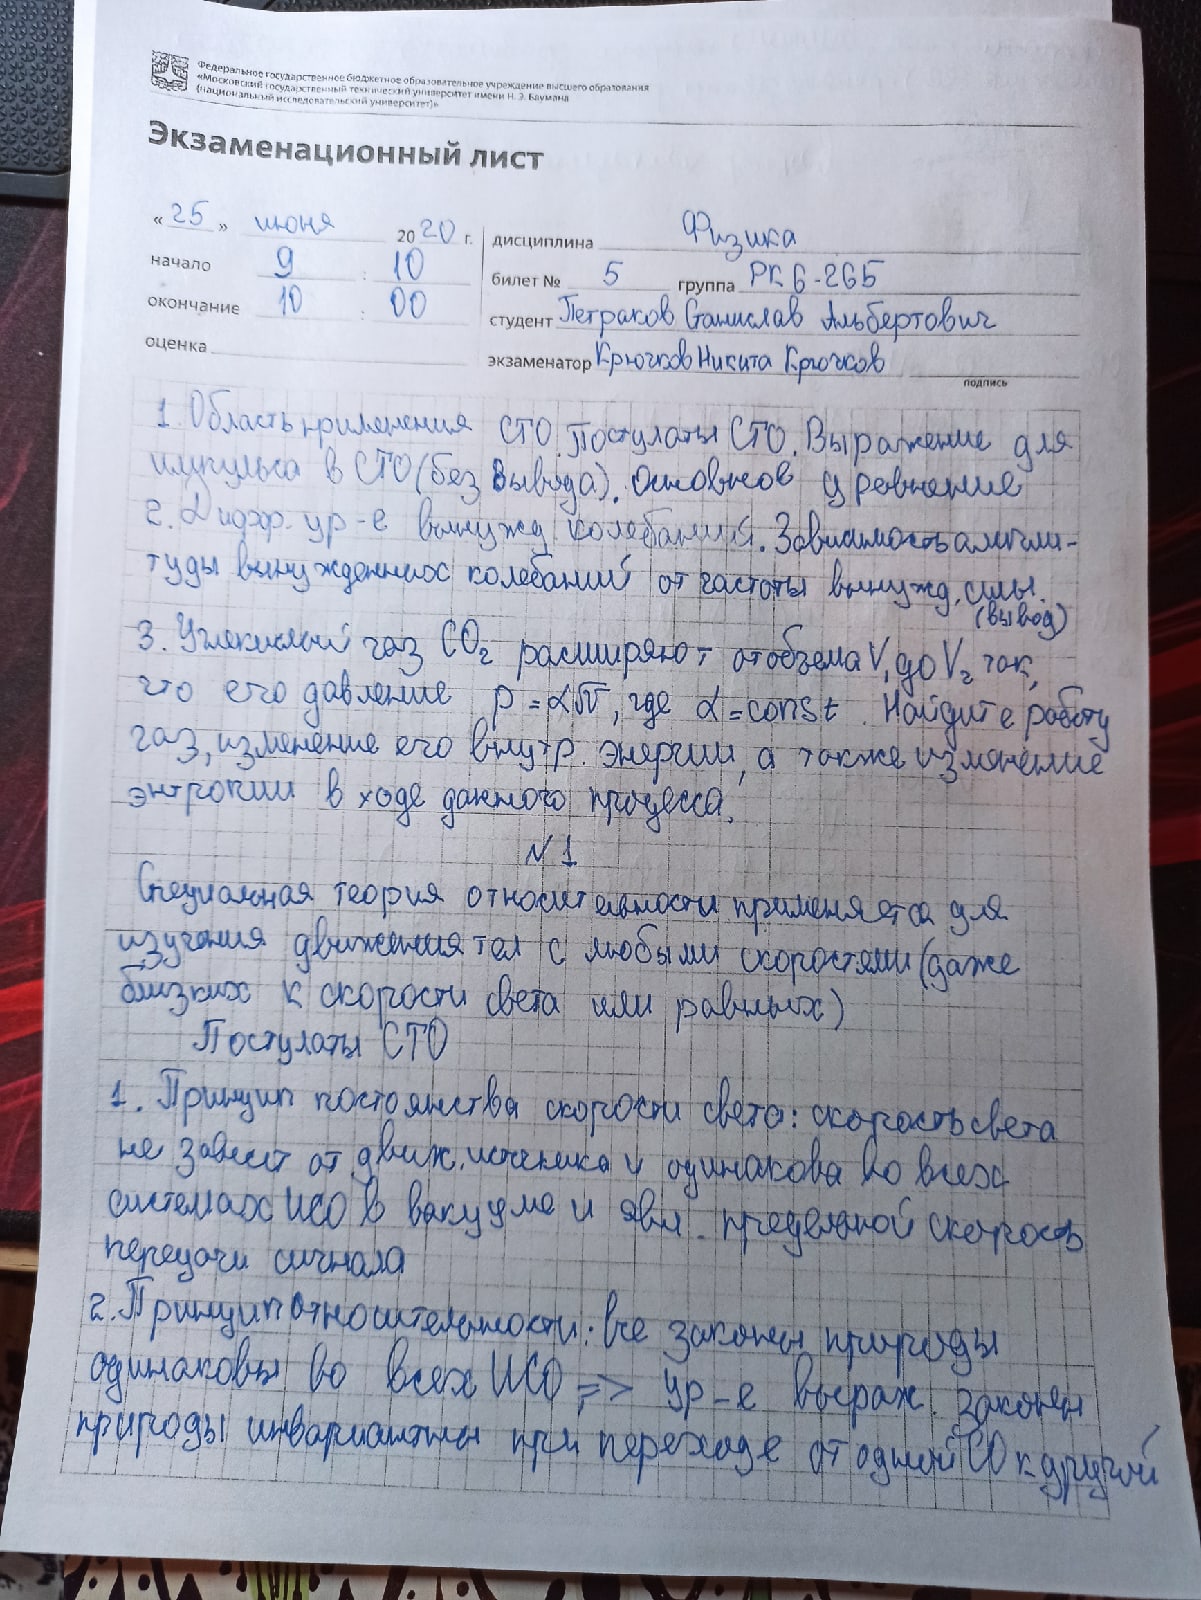 Федеральное государственное бюджетное образовательное учреждение высшего образования
«Московский государственный технический университет имени Н. Э. Баумана
(национальный исследовательский университет)»
Экзаменационный лист
« 25 » июня 20 20 г.
начало 9 : 10
окончание 10 : 00
оценка
дисциплина Физика
билет № 5 группа РК 6-26Б
студент Петраков Станислав Альбертович
экзаменатор Крючков Никита Крючков
подпись
1. Область применения СТО. Постулаты СТО. Выражение для
импульса в СТО (без вывода). Основное уравнение
2. Дифф. ур-е вынужд колебаний. Зависимость ампли-
туды вынужденных колебаний от частоты вынужд. силы.
(вывод)
3. Углекислый газ CO2 расширяют от объёма V1 до V2 так,
что его давление p = α√T, где α = const. Найдите работу
газ, изменение его внутр. энергии, а также изменение
энтропии в ходе данного процесса.
N 1
Специальная теория относительности применяется для
изучения движения тел с любыми скоростями (даже
близких к скорости света или равных)
Постулаты СТО
1. Принцип постоянства скорости света: скорость света
не зависит от движ. источника и одинакова во всех
системах ИСО в вакууме и явл. предельной скорость
передачи сигнала
2. Принцип относительности: все законы природы
одинаковы во всех ИСО => ур-е выраж. законы
природы инвариантны при переходе от одной СО к другой